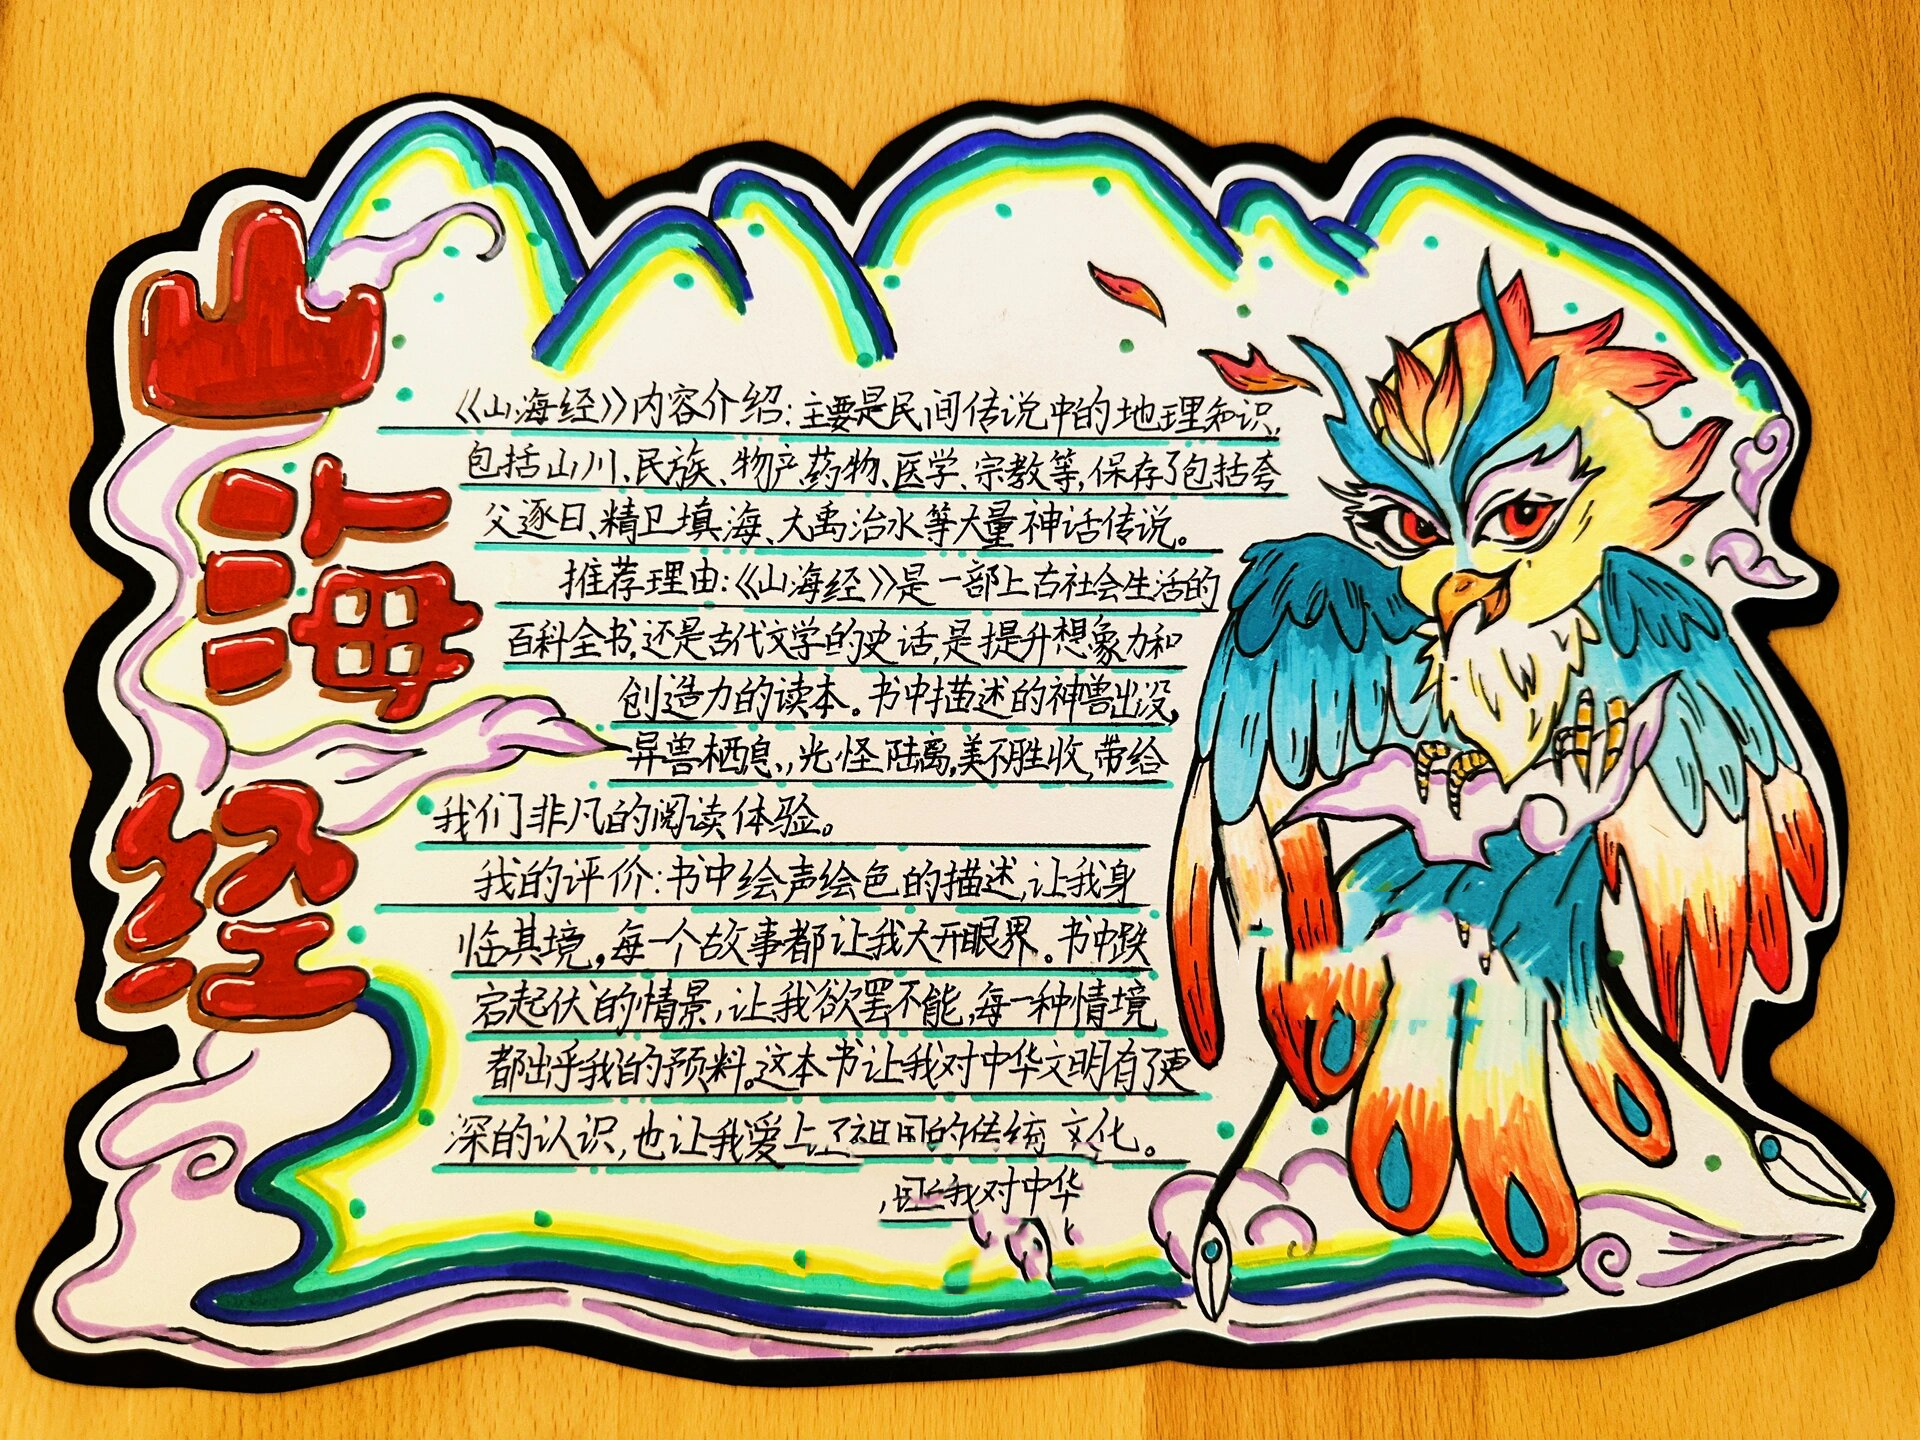 山海经
《山海经》内容介绍:主要是民间传说中的地理知识,
包括山川、民族、物产药物、医学、宗教等,保存了包括夸
父逐日、精卫填海、大禹治水等大量神话传说。
推荐理由:《山海经》是一部上古社会生活的
百科全书,还是古代文学的史话,是提升想象力和
创造力的读本。书中描述的神兽出没,
异兽栖息,光怪陆离,美不胜收,带给
我们非凡的阅读体验。
我的评价:书中绘声绘色的描述,让我身
临其境,每一个故事都让我大开眼界。书中跌
宕起伏的情景,让我欲罢不能,每一种情境
都出乎我的预料。这本书让我对中华文明有了更
深的认识,也让我爱上了祖国的传统文化。
我对中华